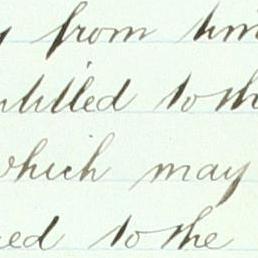 y from tim
ntitled to the
which may
ed to the